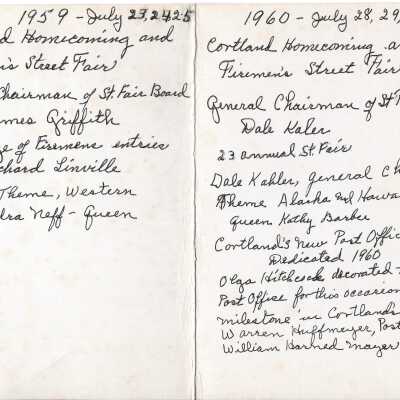 1959 - July 23, 24 25
d Homecoming and
n's Street Fair
Chairman of St. Fair Board
mes Griffith
ge of Firemens entries
chard Linville
Theme, Western
dra Neff - Queen
1960 - July 28, 29,
Cortland Homecoming a
Firemen's Street Fair
General Chairman of St
Dale Kaler
23 annual St. Fair
Dale Kahler, general Ch
Theme Alaska and Hawa
Queen Kathy Barber
Cortland's New Post Offic
Dedicated 1960
Olga Hitchcock decorated
Post Office for this occasion
milestone in Cortland's
Warren Huffmeyer, Post
William Harned Mayer